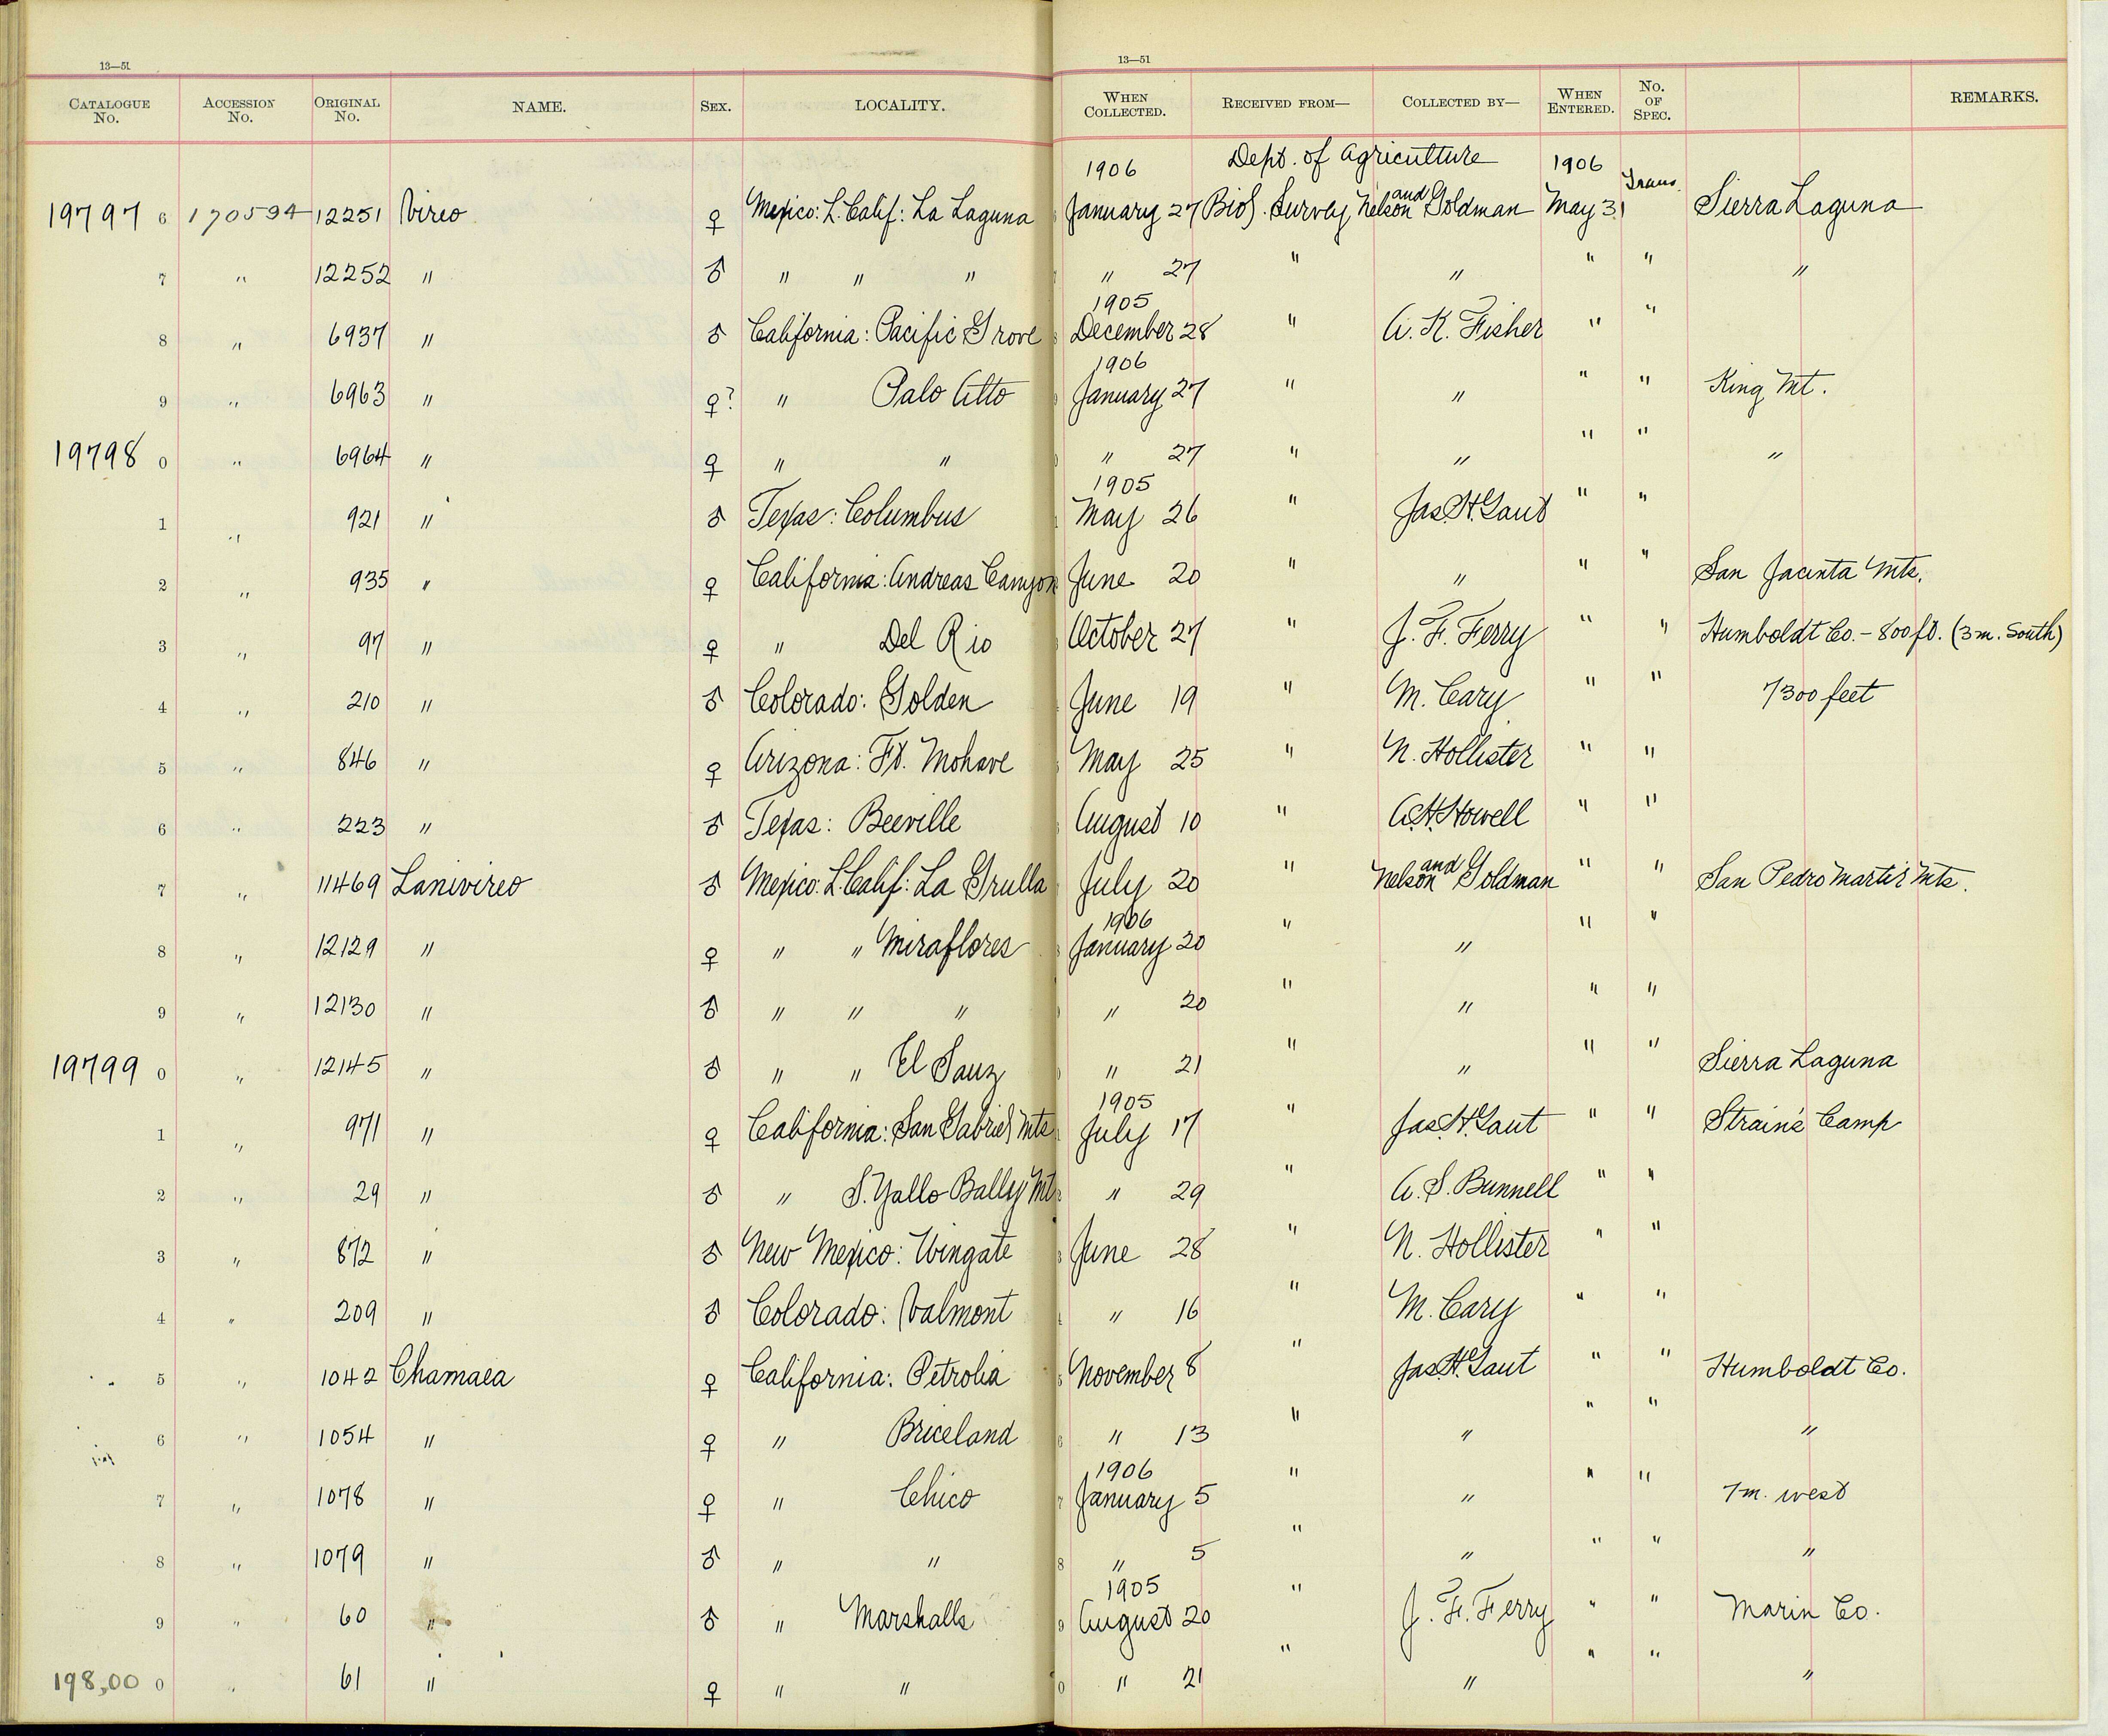 13—51 13—51
CATALOGUE No. ACCESSION No. ORIGINAL No. NAME. SEX. LOCALITY. WHEN COLLECTED. RECEIVED FROM— COLLECTED BY— WHEN ENTERED. No. OF SPEC. REMARKS.
1906 Dept. of Agriculture 1906 Trans.
19797 6 170594 12251 Vireo ♀ Mexico: L. Calif: La Laguna January 27 Biol. Survey Nelson and Goldman May 31 Sierra Laguna
7 " 12252 " ♂ " " " " 27 " " " " "
1905
8 " 6937 " ♂ California: Pacific Grove December 28 " A. K. Fisher " "
1906
9 " 6963 " ♀? " Palo Alto January 27 " " " " King Mt.
19798 0 " 6964 " ♀ " " " 27 " " " " "
1905
1 " 921 " ♂ Texas: Columbus May 26 " Jas. H. Gaut " "
2 " 935 " ♀ California: Andreas Canyon June 20 " " " " San Jacinta Mts.
3 " 97 " ♀ " Del Rio October 27 " J. F. Ferry " " Humboldt Co. - 800 ft. (3 m. South)
4 " 210 " ♂ Colorado: Golden June 19 " M. Cary " " 7300 feet
5 " 846 " ♀ Arizona: Ft. Mohave May 25 " N. Hollister " "
6 " 223 " ♂ Texas: Beeville August 10 " A. H. Howell " "
7 " 11469 Lanivireo ♂ Mexico: L. Calif: La Grulla July 20 " Nelson and Goldman " " San Pedro Martir Mts.
1906
8 " 12129 " ♀ " " Miraflores January 20 " " " "
9 " 12130 " ♂ " " " " 20 " " " "
19799 0 " 12145 " ♂ " " El Sauz " 21 " " " " Sierra Laguna
1905
1 " 971 " ♀ California: San Gabriel Mts July 17 " Jas. H. Gaut " " Strain's Camp
2 " 29 " ♂ " S. Yallo Bally Mt. " 29 " A. S. Bunnell " "
3 " 872 " ♂ New Mexico: Wingate June 28 " N. Hollister " "
4 " 209 " ♂ Colorado: Valmont " 16 " M. Cary " "
5 " 1042 Chamaea ♀ California: Petrolia November 8 " Jas. H. Gaut " " Humboldt Co.
6 " 1054 " ♀ " Briceland " 13 " " " " "
1906
7 " 1078 " ♀ " Chico January 5 " " " " 7 m. west
8 " 1079 " ♂ " " " 5 " " " " "
1905
9 " 60 " ♂ " Marshalls August 20 " J. F. Ferry " " Marin Co.
198,00 0 " 61 " ♀ " " " 21 " " " " "